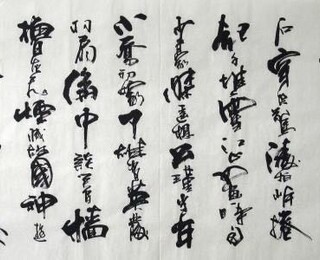 石穿空驚濤拍岸捲
起千堆雪江山如畫一時多
少豪傑遙想公瑾當年
小喬初嫁了雄姿英發
羽扇綸巾談笑間檣
櫓灰飛煙滅故國神遊